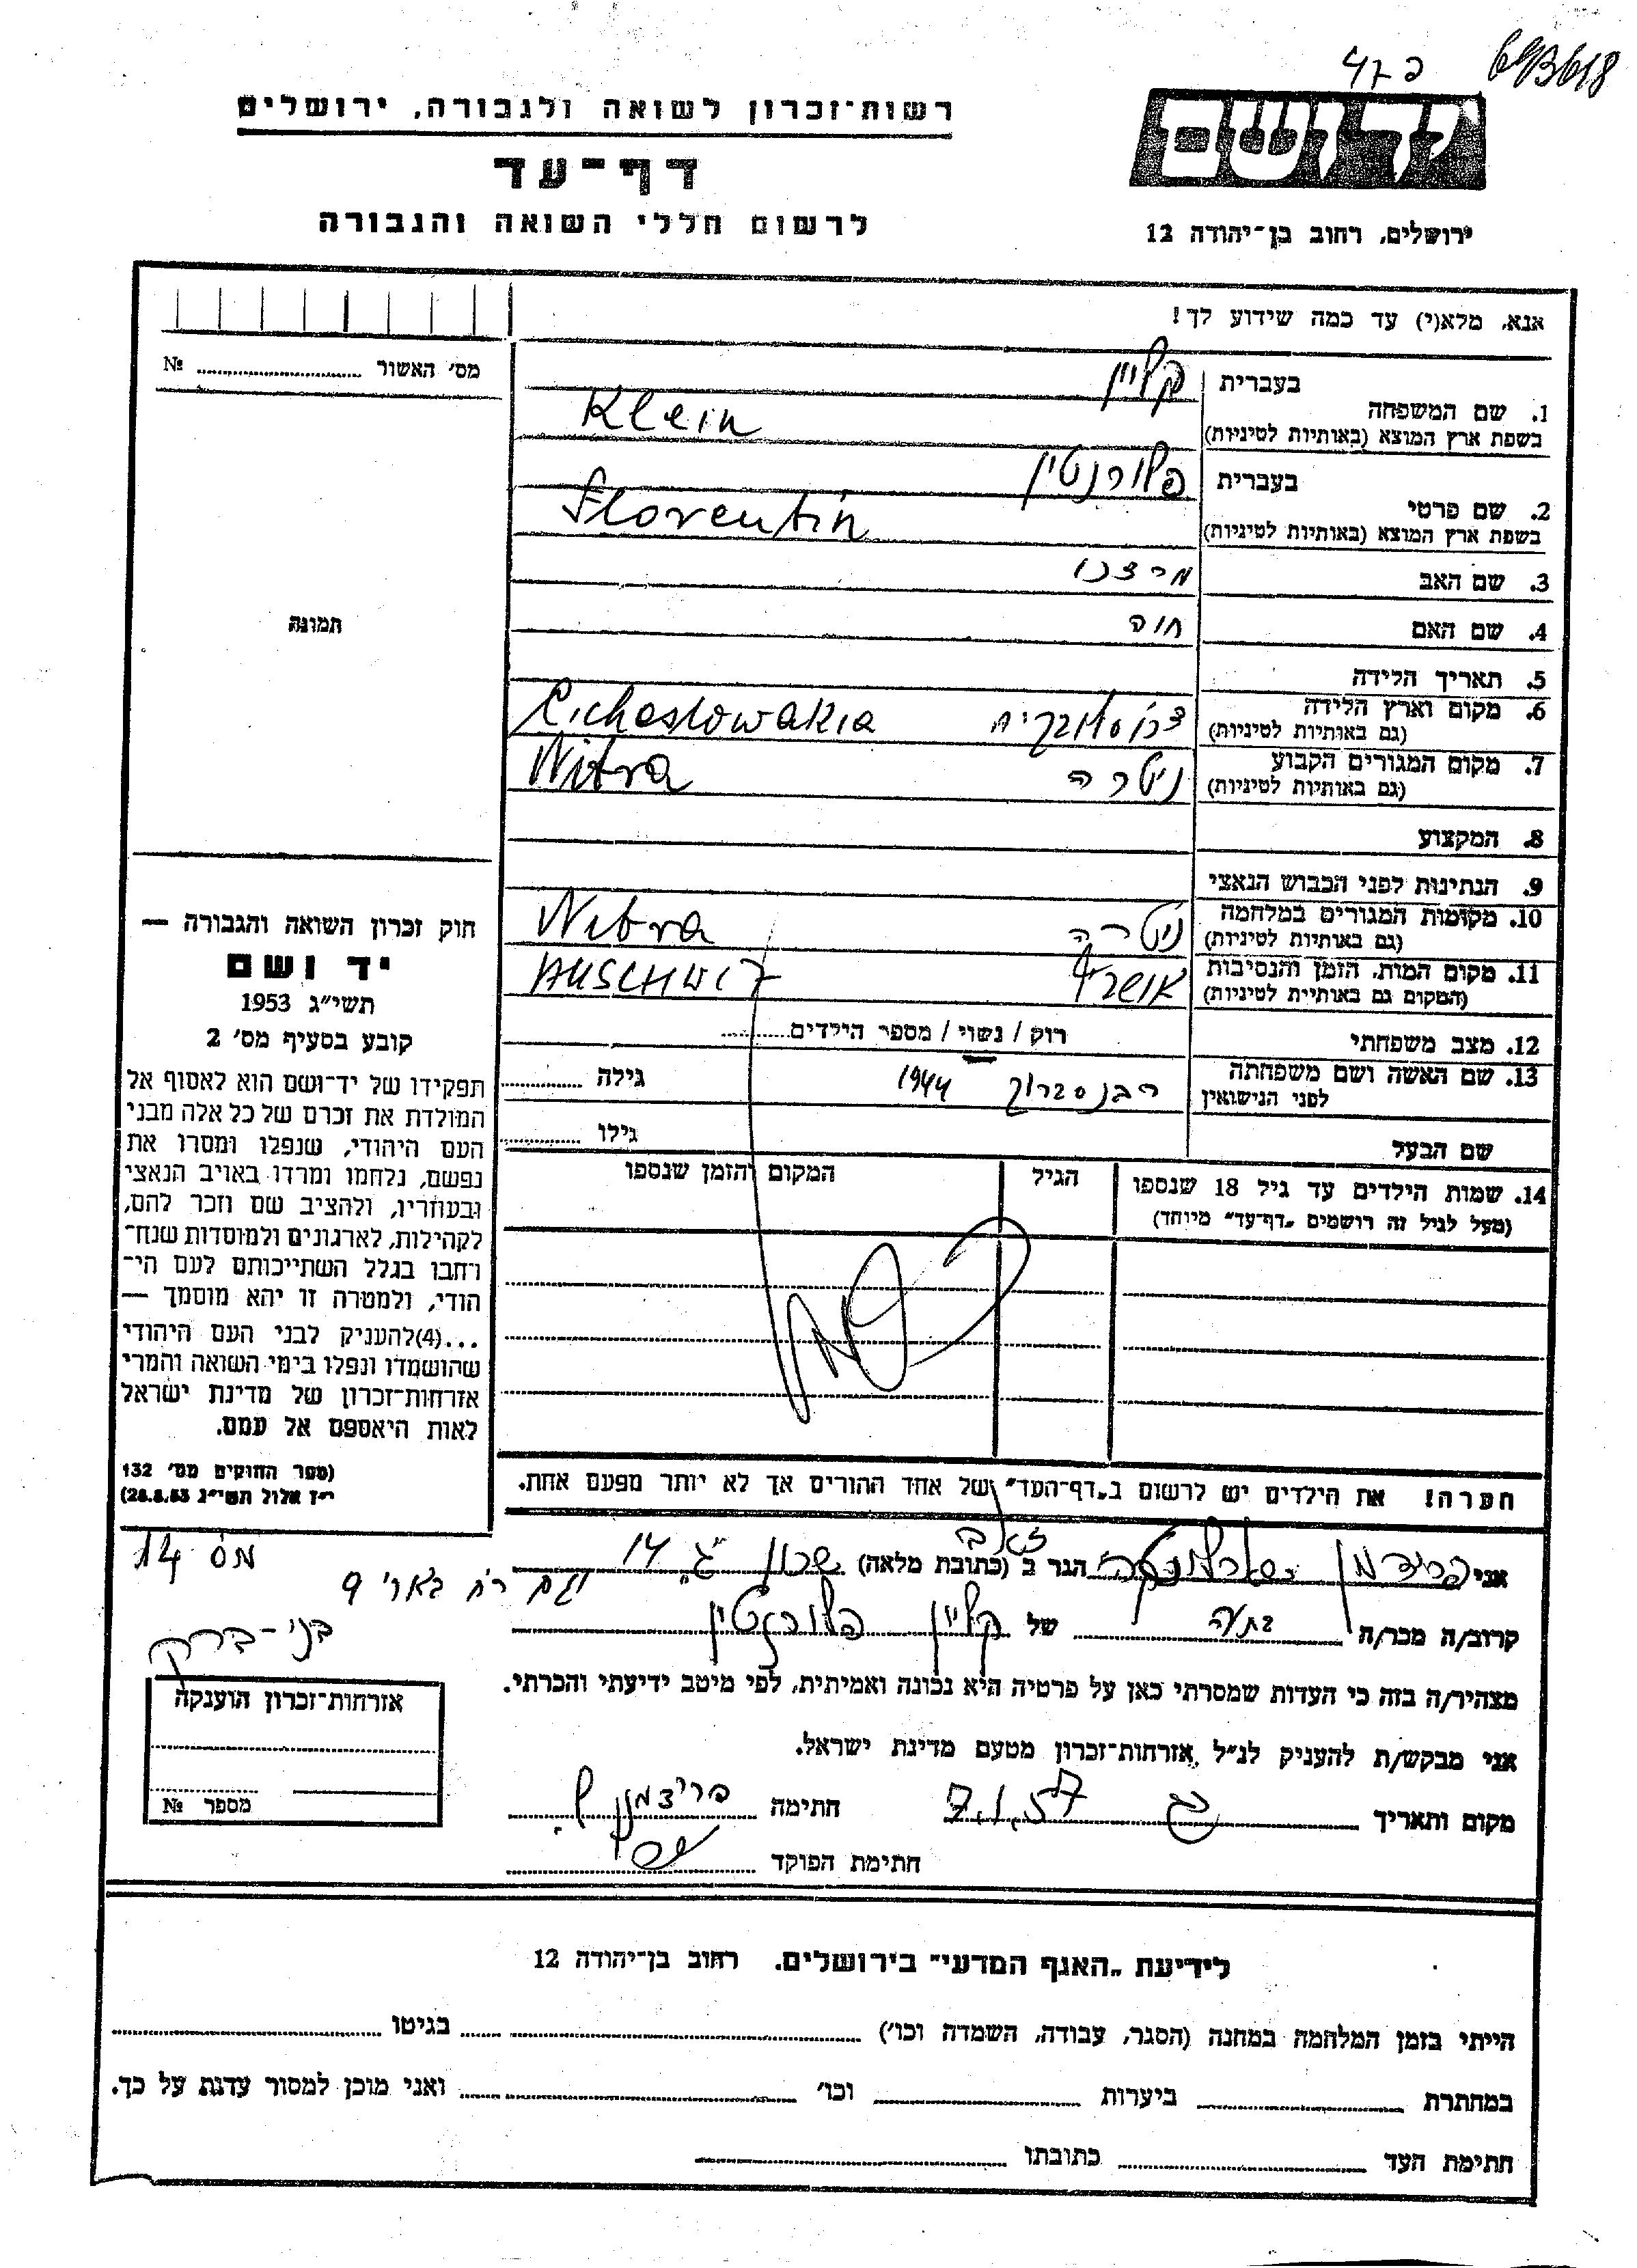 693618
רשות־זכרון לשואה ולגבורה, ירושלים
דף־עד
לרשום חללי השואה והגבורה
יד ושם
ירושלים, רחוב בן־יהודה 12
אנא, מלא(י) עד כמה שידוע לך!
מס׳ האשור № ..........
1. שם המשפחה בעברית קליין
בשפת ארץ המוצא (באותיות לטיניות) Klein
2. שם פרטי בעברית פלורנטין
בשפת ארץ המוצא (באותיות לטיניות) Florentin
3. שם האב
4. שם האם חוה
5. תאריך הלידה
6. מקום וארץ הלידה
(גם באותיות לטיניות)
7. מקום המגורים הקבוע ניטרה Nitra
(גם באותיות לטיניות)
8. המקצוע
9. הנתינות לפני הכבוש הנאצי
10. מקומות המגורים במלחמה ניטרה Nitra
(גם באותיות לטיניות)
11. מקום המות, הזמן והנסיבות AUSCHWITZ
(המקום גם באותיות לטיניות)
12. מצב משפחתי רוק / נשוי / מספר הילדים ..........
13. שם האשה ושם משפחתה 1944 גילה ..........
לפני הנישואין
שם הבעל גילו ..........
14. שמות הילדים עד גיל 18 שנספו הגיל המקום והזמן שנספו
(מעל לגיל זה רושמים „דף־עד״ מיוחד)
תמונה
חוק זכרון השואה והגבורה —
יד ושם
תשי״ג 1953
קובע בסעיף מס׳ 2
תפקידו של יד־ושם הוא לאסוף אל
המולדת את זכרם של כל אלה מבני
העם היהודי, שנפלו ומסרו את
נפשם, נלחמו ומרדו באויב הנאצי
ובעוזריו, ולהציב שם וזכר להם,
לקהילות, לארגונים ולמוסדות שנח־
רבו בגלל השתייכותם לעם הי־
הודי, ולמטרה זו יהא מוסמך —
...(4) להעניק לבני העם היהודי
שהושמדו ונפלו בימי השואה והמרי
אזרחות־זכרון של מדינת ישראל
לאות היאספם אל עמם.
(ספר החוקים מס׳ 132
י״ז אלול תשי״ג 28.8.53)
הערה! את הילדים יש לרשום ב„דף־העד״ של אחד ההורים אך לא יותר מפעם אחת.
אני פרידמן הגר ב (כתובת מלאה)
קרוב/ה מכר/ה של קליין פלורנטין
מצהיר/ה בזה כי העדות שמסרתי כאן על פרטיה היא נכונה ואמיתית, לפי מיטב ידיעתי והכרתי.
אני מבקש/ת להעניק לנ״ל אזרחות־זכרון מטעם מדינת ישראל.
מקום ותאריך 7.1.57 חתימה
חתימת הפוקד
אזרחות־זכרון הוענקה
מספר №
לידיעת „האגף המדעי״ בירושלים. רחוב בן־יהודה 12
הייתי בזמן המלחמה במחנה (הסגר, עבודה, השמדה וכו׳) .......... בגיטו ..........
במחתרת .......... ביערות .......... וכו׳ .......... ואני מוכן למסור עדות על כך.
חתימת העד .......... כתובתו ..........